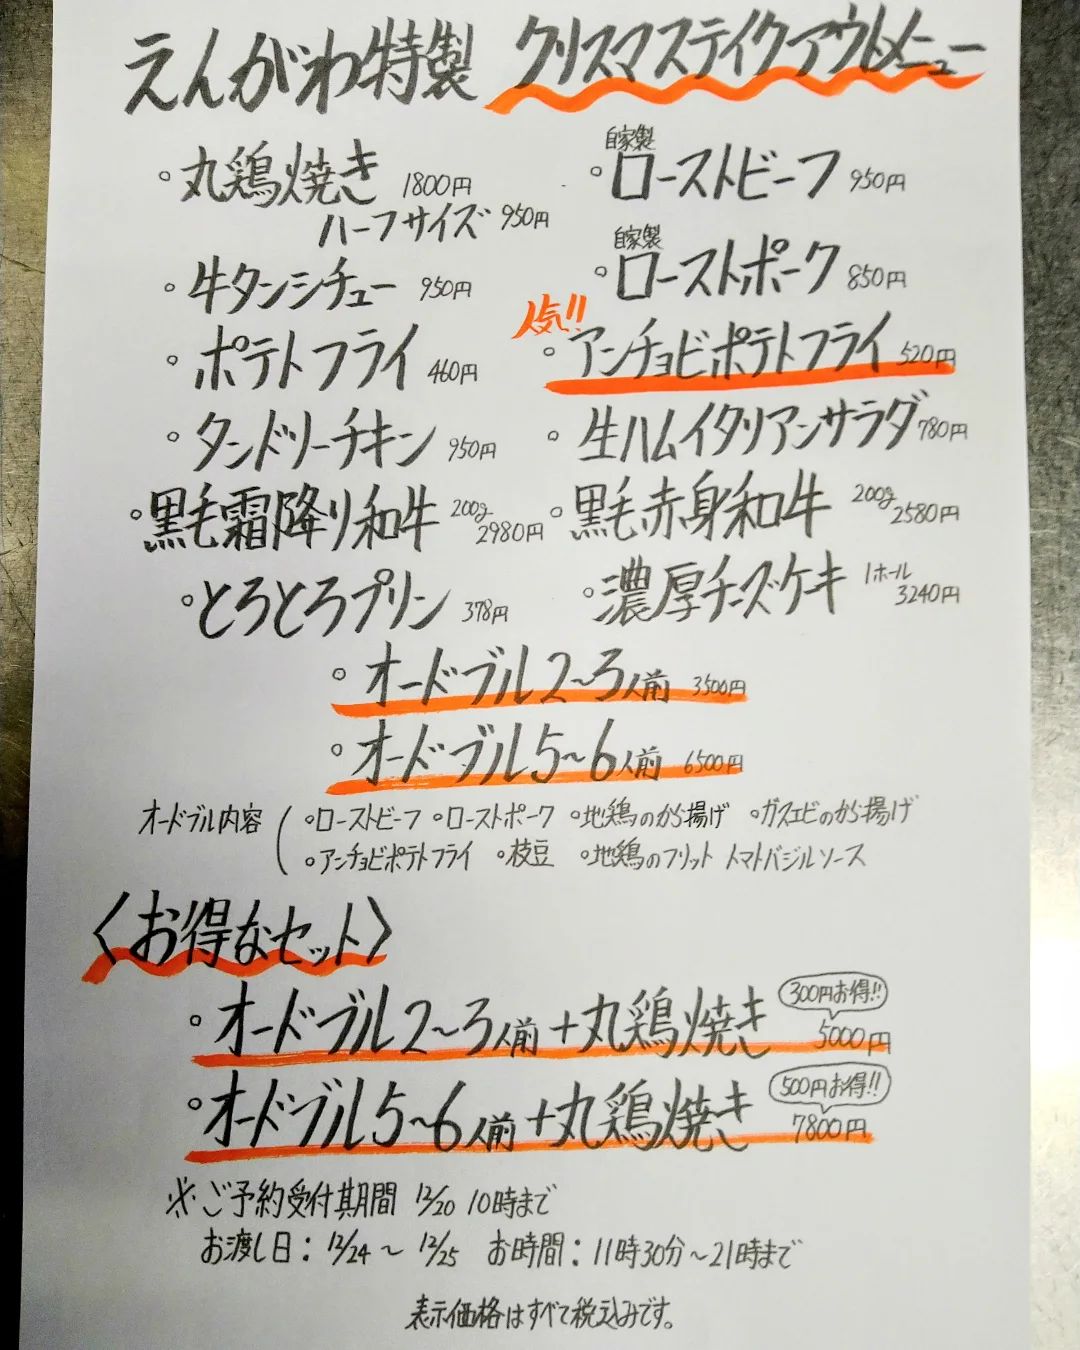 えんがわ特製 クリスマステイクアウトメニュー
・丸鶏焼き 1800円
ハーフサイズ 950円
・自家製ローストビーフ 950円
・牛タンシチュー 950円
・自家製ローストポーク 850円
・ポテトフライ 460円
人気!!
・アンチョビポテトフライ 520円
・タンドリーチキン 950円
・生ハムイタリアンサラダ 780円
・黒毛霜降り和牛 200g 2980円
・黒毛赤身和牛 200g 2580円
・とろとろプリン 378円
・濃厚チーズケーキ 1ホール 3240円
・オードブル2〜3人前 3500円
・オードブル5〜6人前 6500円
オードブル内容 (・ローストビーフ ・ローストポーク ・地鶏のから揚げ ・ガスエビのから揚げ
・アンチョビポテトフライ ・枝豆 ・地鶏のフリット トマトバジルソース
〈お得なセット〉
・オードブル2〜3人前+丸鶏焼き 300円お得!! 5000円
・オードブル5〜6人前+丸鶏焼き 500円お得!! 7800円
※ご予約受付期間 12/20 10時まで
お渡し日：12/24〜12/25 お時間：11時30分〜21時まで
表示価格はすべて税込みです。